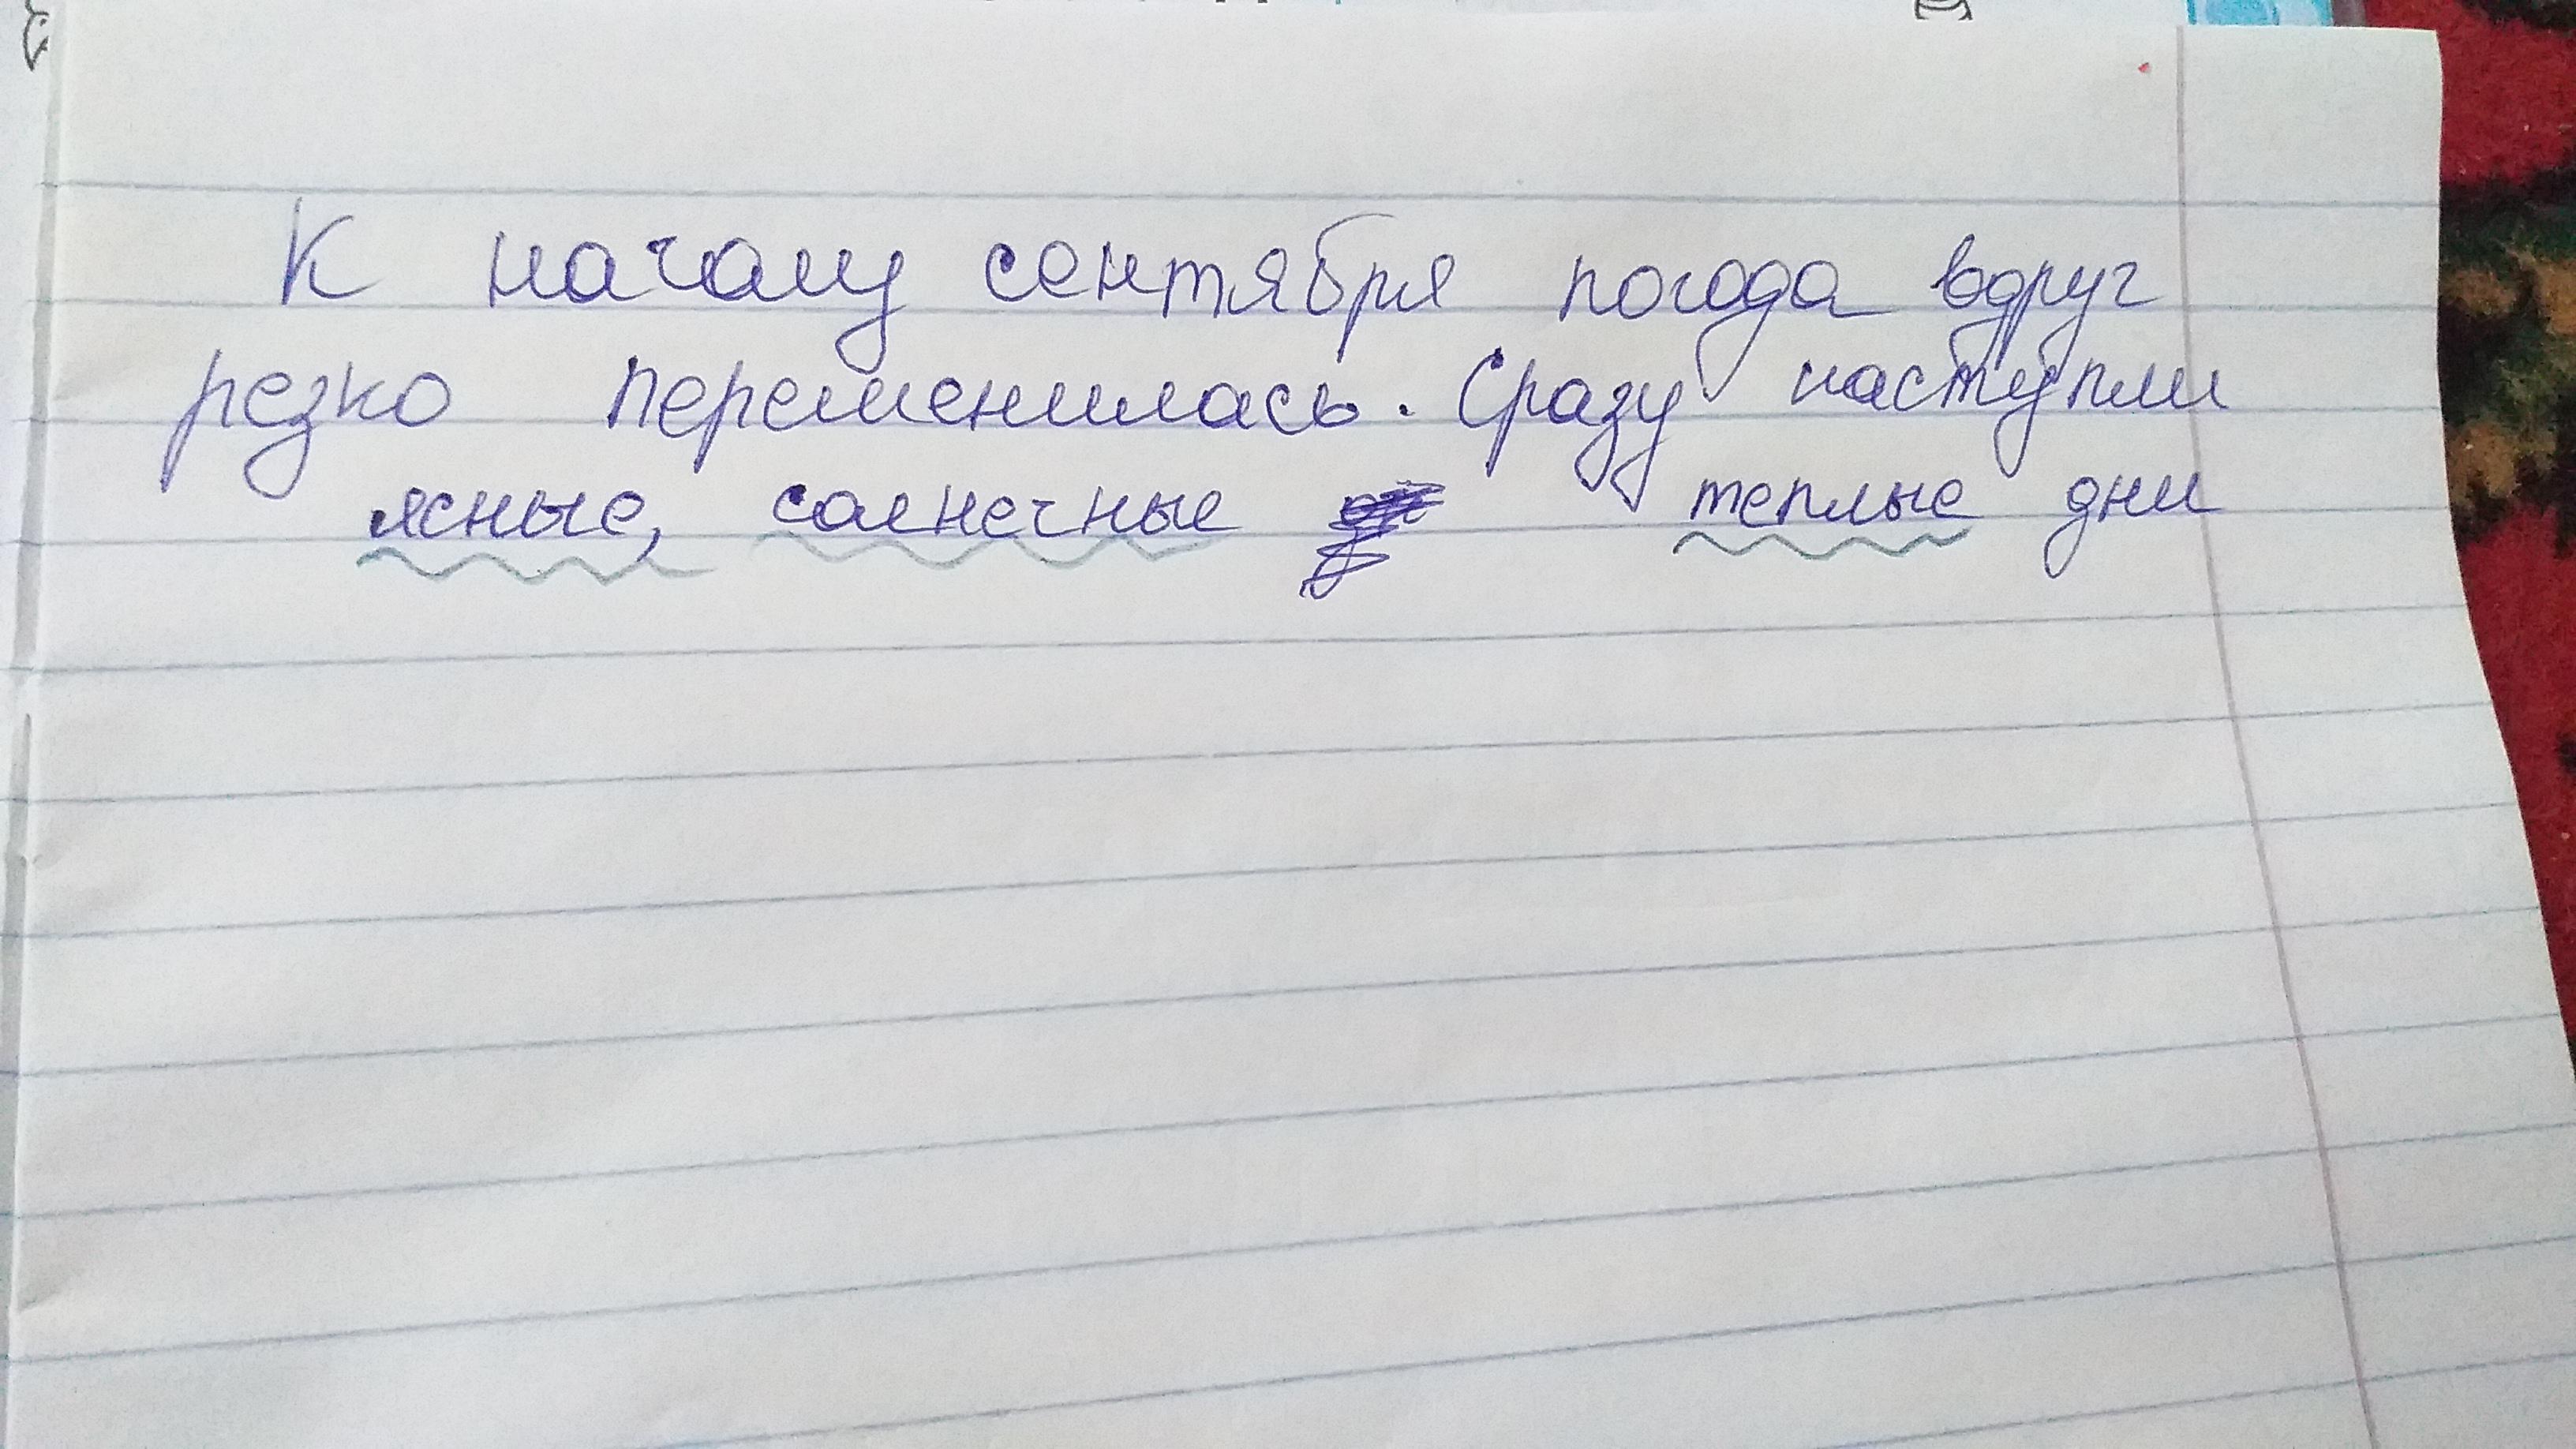 К началу сентября погода вдруг
резко переменилась. Сразу наступли
ясные, солнечные теплые дни